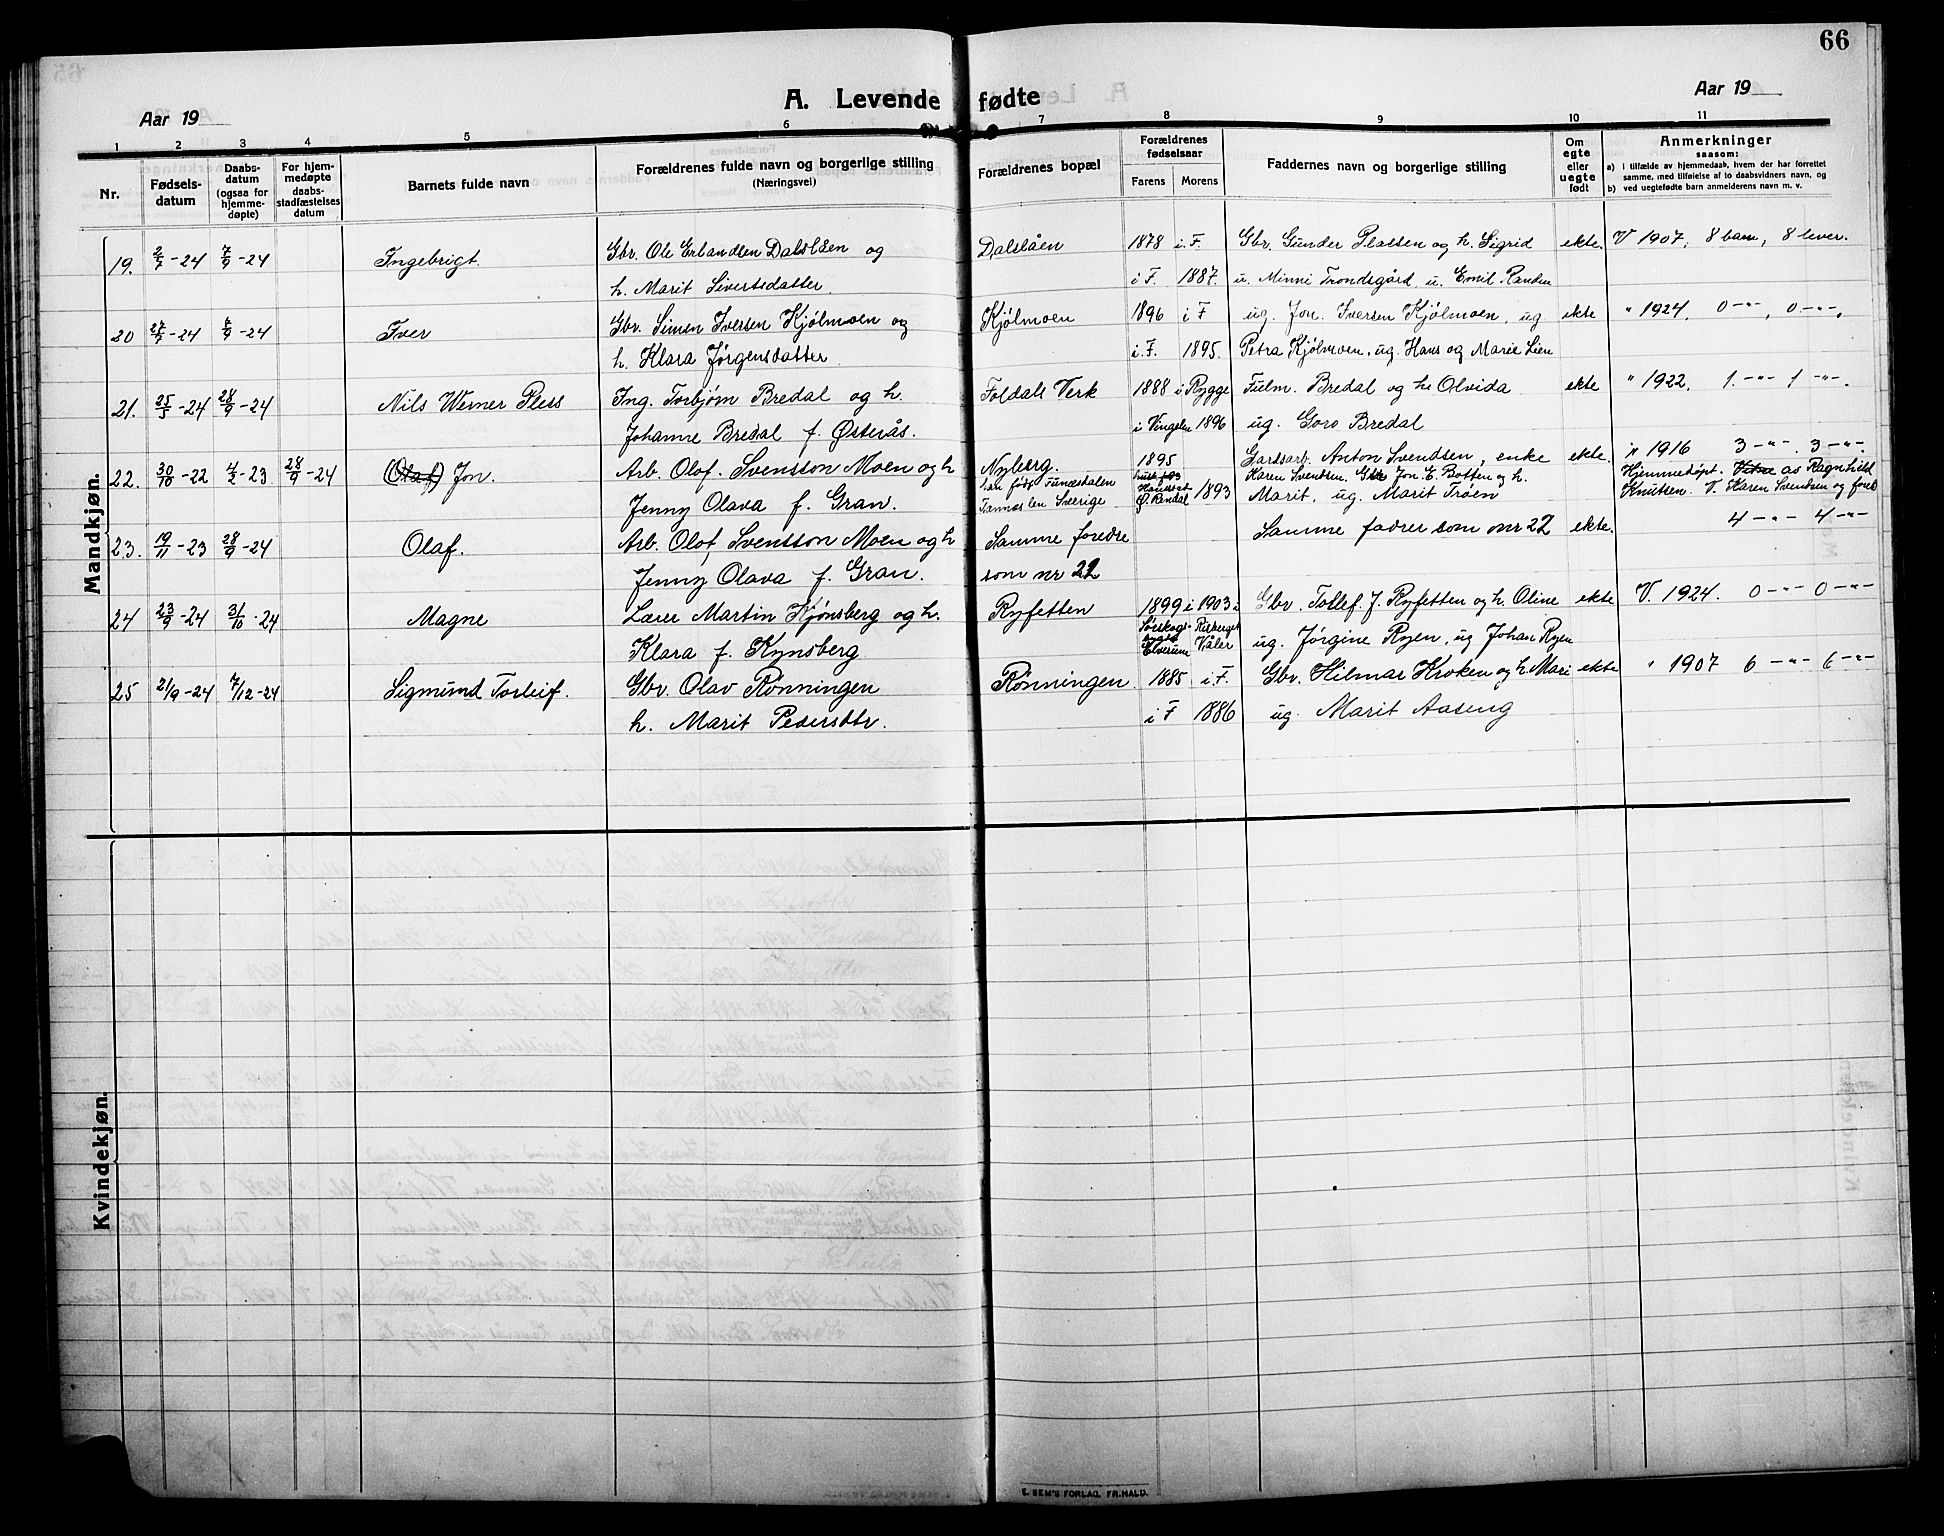 66
A. Levende fødte
Aar 19
Aar 19
1 2 3 4 5 6 7 8 9 10 11
Nr.
Fødsels-
datum
Daabs-
datum
(ogsaa for
hjemme-
døpte)
For hjem-
medøpte
daabs-
stadfæstelses
datum
Barnets fulde navn
Forældrenes fulde navn og borgerlige stilling
(Næringsvei)
Forældrenes bopæl
Forældrenes
fødselsaar
Farens Morens
Faddernes navn og borgerlige stilling
Om
egte
eller
uegte
født
Anmerkninger
saasom:
a) i tilfælde av hjemmedaab, hvem der har forrettet
samme, med tilføielse af to daabsvidners navn, og
b) ved uegtefødte barn anmelderens navn m. v.
Mandkjøn.
19. 2/7-24 7/9-24 Ingebrigt. Gbr. Ole Erlandsen Dalslåen og Dalslåen 1878 i. F. Gbr. Gunder Plassen og h. Sigrid ekte. V 1907, 8 barn, 8 lever.
h. Marit Sivertsdatter i F. 1887. u. Minni Trondsgård, u. Emil Randen
20 27/7-24 /9-24 Iver Gbr. Simen Iversen Kjølmoen og Kjølmoen 1896 i F ug. Jon. Iversen Kjølmoen, ug ekte " 1924, 0 -"-, 0 -"-,
h Klara Jørgensdatter i. F. 1895. Petra Kjølmoen, ug. Hans og Marie Lien
21. 25/5-24 28/9-24 Nils Werner Pless Ing. Torbjørn Bredal og h. Foldals Verk 1888 i Rygge Fulm. Bredal og h. Olvida ekte " 1922, 1. -"- 1 -"-.
Johanne Bredal f. Østerås. i Vingelen 1896 ug. Goro Bredal
22. 30/10-22 4/2-23 28/9-24 (Olaf) Jon. Arb. Olof. Svensson Moen og h Nyberg. 1895 Gardsarb. Anton Svendsen, enke ekte. " 1916 3 -"- 3 -"-
han født Funæsdalen Haren Svendsen. Gbr Jon E. Botten og h. Hjemmedøpt. av Ragnhild
Jenny Olava f. Gran. Tannæs len Sverige Ø. Rendal 1893 Marit, ug. Marit Trøen Knutsen. V. Karen Svendsen og
23. 19/11-23 28/9-24 Olaf. Arb. Olof Svensson Moen og h Samme foredre Samme fadrer som nr 22 ekte. 4 -"- 4 -"-
Jenny Olava f. Gran. som nr 22
24 23/9-24 31/10-24 Magne Lærer Martin Kjønsberg og h. Ryfetten 1899 i 1903 i Gbr. Tollef J. Ryfetten og h. Oline ekte V. 1924. 0 -"- 0 -"-
Klara f. Kynsberg. Elverum Risberget Våler ug. Jørgine Ryen, ug Johan Ryen
25 21/9-24 7/12-24 Sigmund Torleif. Gbr. Olav Rønningen Rønningen 1885 i F. Gbr. Hilmar Kroken og h. Mari ekte " 1907 6 -"- 6 -"-
h. Marit Pedersdtr. i F 1886 ug. Marit Aaseng
Kvindekjøn.
E. SEM'S FORLAG, FR.HALD.